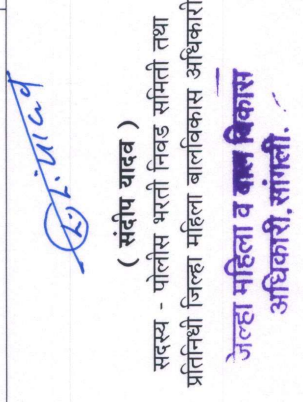 ( संदीप यादव )
सदस्य - पोलीस भरती निवड समिती तथा
प्रतिनिधी जिल्हा महिला बालविकास अधिकारी
जिल्हा महिला व बाल विकास
अधिकारी, सांगली.